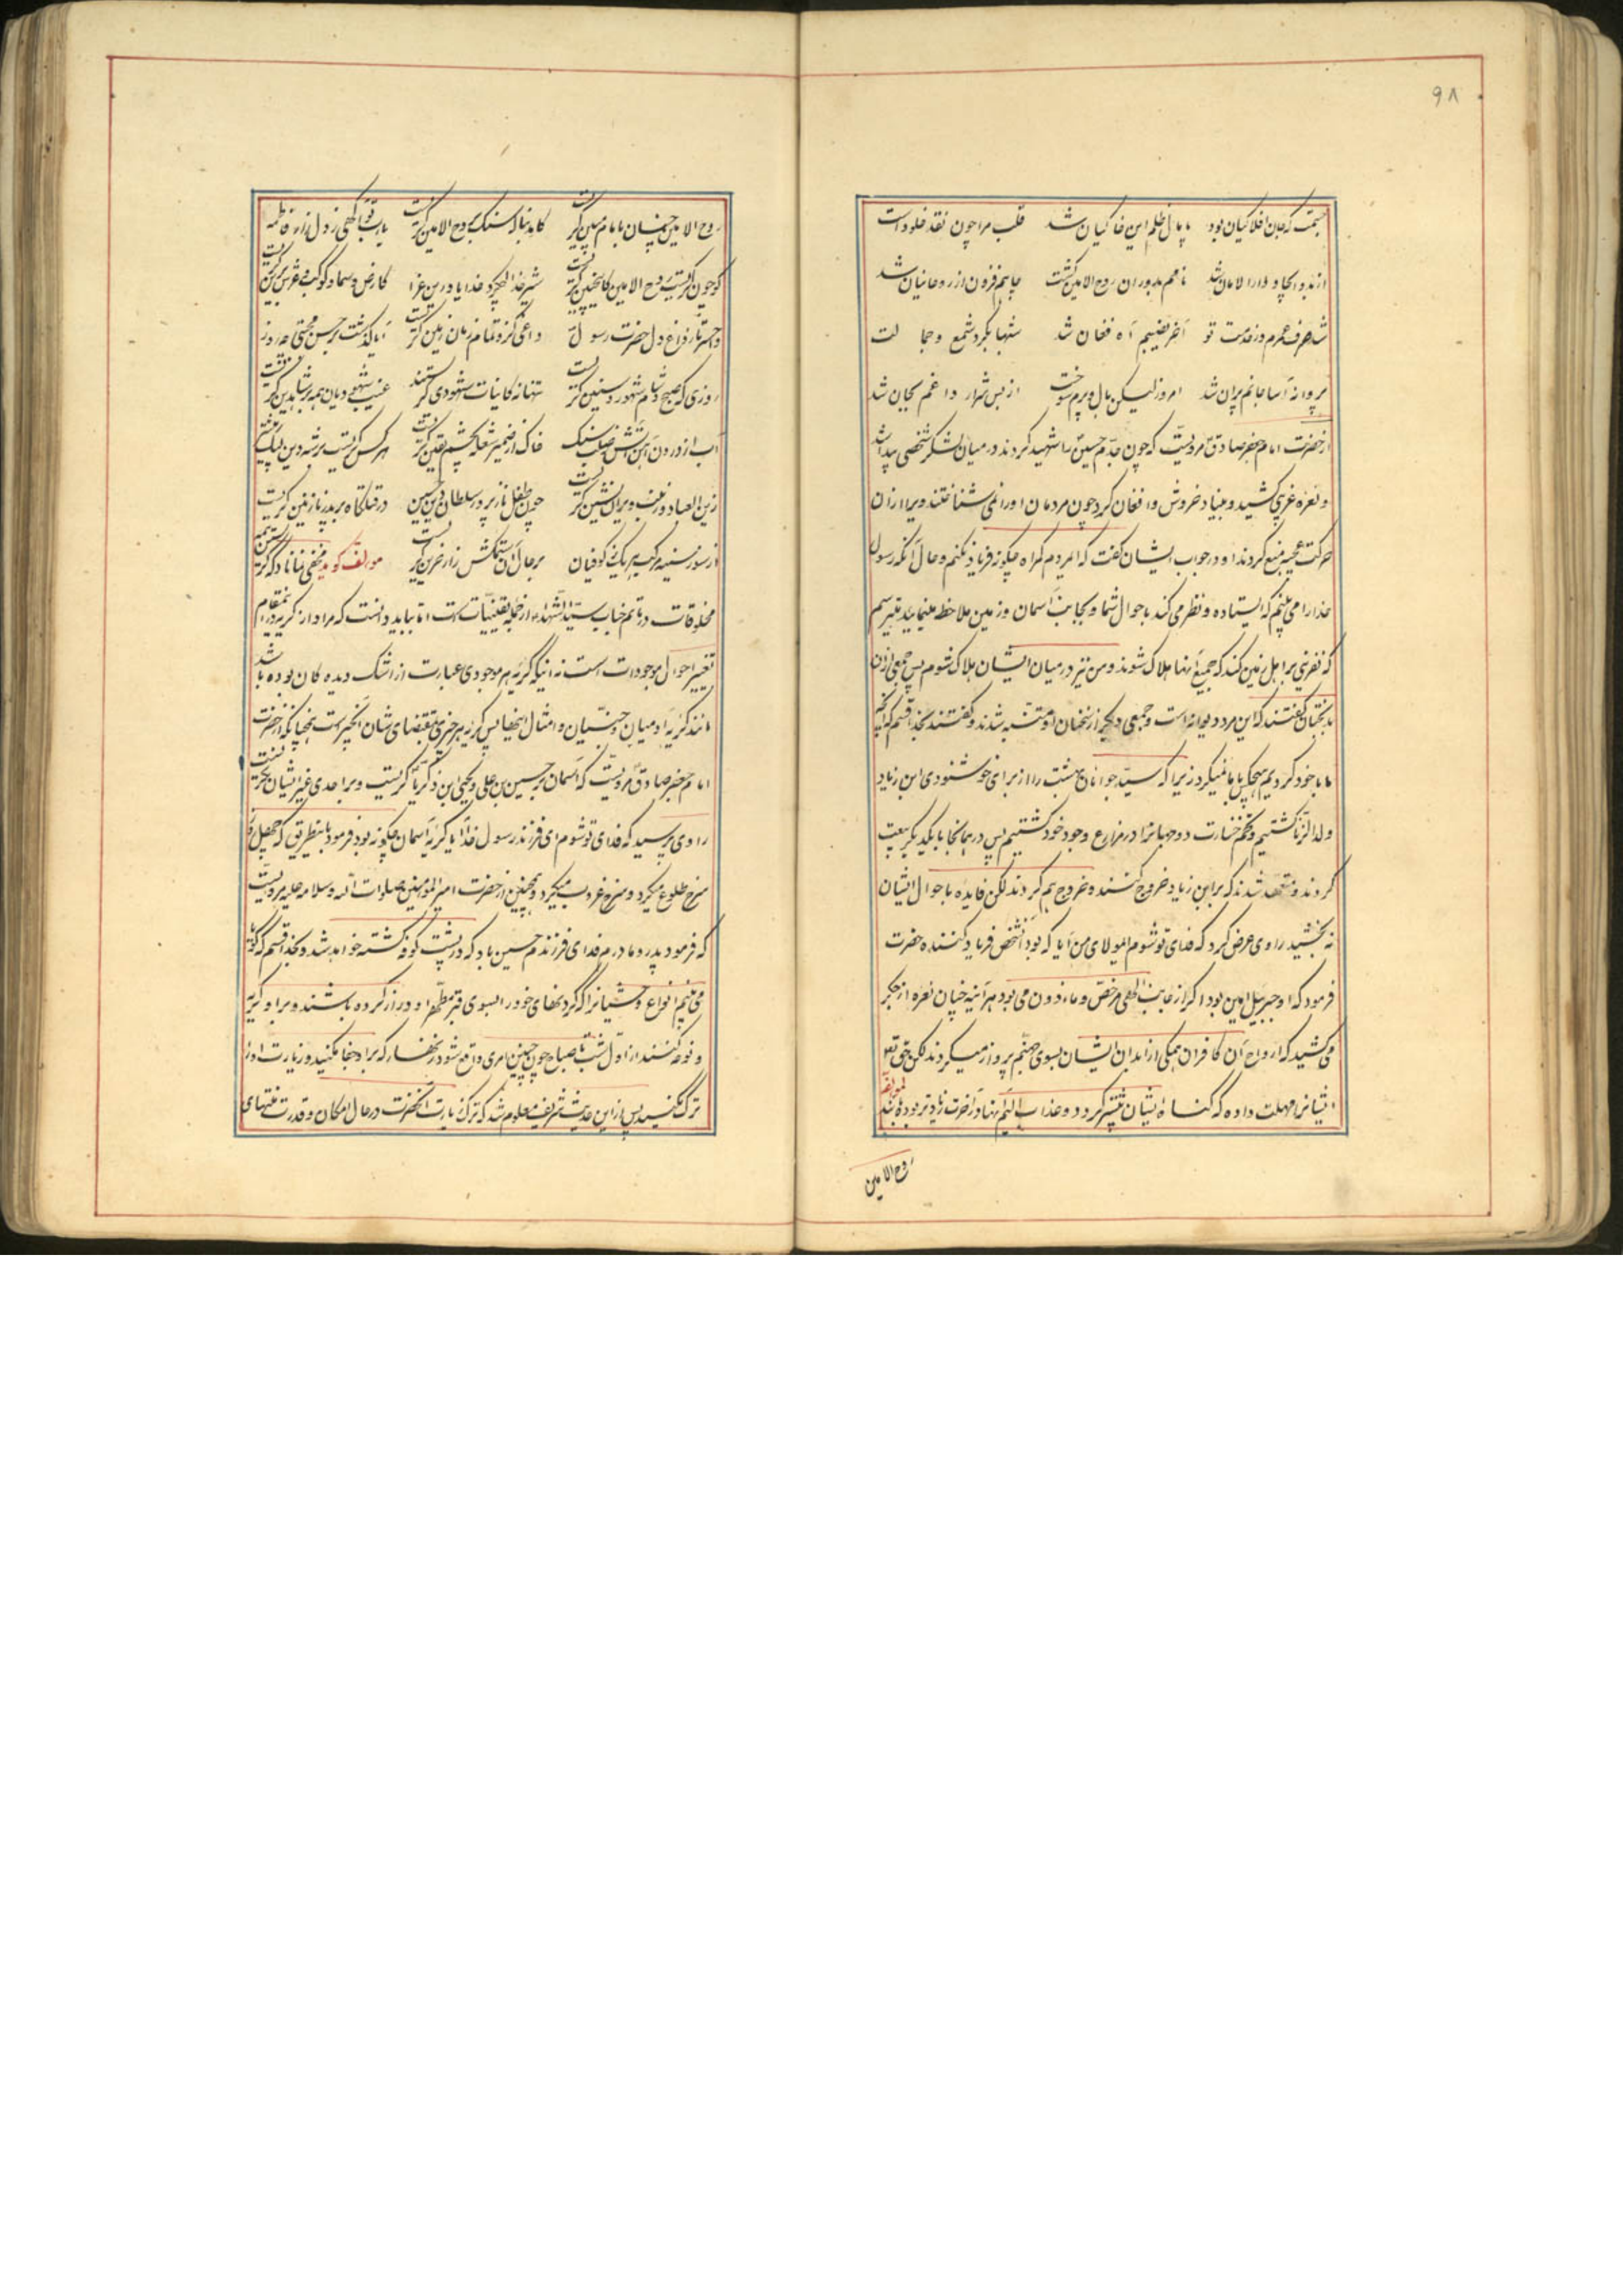 ۹۸
جسمت که جان افلاکیان بود پامال ظلم این خاکیان شد قلب مراچون نقد خلوداست
نامم بدوران روح الامین گشت جایم فزون از روحانیان شد
شد صرف عمرم در خدمت تو آخر نصیبم آه فغان شد شبها بگرد شمع و جمالت
پروانه آسا جانم پران شد امروز لیکن بال و پرم سوخت از بس شرار داغم بجان شد
از حضرت امام جعفر صادق مرویست که چون جدّم حسین را شهید کردند در میان لشکر شخصی پیدا شد
و نعره غریبی کشید و بنیاد خروش و افغان کرد چون مردمان او را نمی شناختند ویرا از آن
حرکت عجیبه منع کردند او در جواب ایشان گفت که ای مردم گمراه چگونه فریاد نکنم و حال آنکه رسول
خدا را می بینم که ایستاده و نظر می کند باحوال شما و بجانب آسمان و زمین ملاحظه مینماید میترسم
که نفرینی بر اهل زمین کند که جمیع آنها هلاک شوند و من نیز در میان ایشان هلاک شوم پس جمعی از آن
بدبختان گفتند که این مرد دیوانه است و جمعی دیگر از سخنان او متنبه شدند و گفتند بخدا قسم که آنچه
ما با خود کردیم هیچکس با ما نمیکرد زیرا که سید جوانان بهشت را از برای خوشنودی ابن زیاد
ولد الزنا کشتیم و تخم خسارت دو جهانرا در مزارع وجود خود کشتیم پس در همانجا با یکدیگر بیعت
کردند و متعهد شدند که بر ابن زیاد خروج کنند و خروج هم کردند لکن فایده باحوال ایشان
نه بخشید راوی عرض کرد که فدای تو شوم ای مولای من آیا که بود آنشخص فریاد کننده حضرت
فرمود که او جبرییل امین بود اگر از جانب الهی مرخص و ماذون می بود هرآینه چنان نعره از جگر
می کشید که ارواح آن کافران همگی از ابدان ایشان بسوی جهنم پرواز میکردند لکن حق تع
ایشانرا مهلت داده که گناه ایشان بیشتر گردد و عذاب الیم آنها در آخرت زیادتر بوده باشد لمولفه
روح الامین
روح الامین چنان با امام مبین گریست کاندر بناله سنک بروح الامین گریست یارب الهی ز دل زار فاطمه
کو چون گریست روح الامین کاینچنین گریست شیر خدا خدایا درین عزا کارض و سما و کوکب و عرش برین گریست
واحسرتا ز داغ دل حضرت رسول داغی کزو تمام زمان و زمین گریست آیا گذشت بر حسن مجتبی چه روز
روزی که صبح و شام و شهور و سنین گریست تنها نه کاینات شهودی گریستند غیب و شهود
آب از درون آهن و آتش ز صلب سنک خاک از ضمیر شعله بچشم یقین گریست هر کس گریست بر شه دین
زین العباد و زینب ویران نشین گریست چون طفل نازپرور سلطان دین حسین در قتلگاه بر پدر نازنین گریست
از سوز سینه مرکب کوفیان بر حال آن ستمکش زار غریب گریست مولف گوید مخفی نماناد که گریستن همه
مخلوقات در ماتم جناب سید الشهداء از جمله یقینیات است اما بباید دانست که مراد از گریه در این مقام
تغییر احوال موجودات است نه اینکه گریه هر موجودی عبارت از اشک دیدهکان بوده باشد
مانند گریه آدمیان و جنیان و امثال اینها پس گریه هر چیزی بمقتضای شان آنچیز است همچنانکه از حضرت
امام جعفر صادق مرویست که آسمان بر حسین بن علی و یحیی ابن زکریا گریست و بر احدی غیر ایشان نگریست
راوی پرسید که فدای تو شوم ای فرزند رسول خدا آیا گریه آسمان چگونه بود فرمود باینطریق که چهل روز
سرخ طلوع میکرد و سرخ غروب میکرد و همچنین از حضرت امیر المومنین صلوات الله وسلامه علیه مرویست
که فرمود پدر و مادرم فدای فرزندم حسین باد که در پشت کوفه کشته خواهد شد و بخدا قسم که گویا
می بینم انواع وحشیانرا که گردنهای خود را بسوی قبر مطهر او دراز کرده باشند و بر او گریه
و نوحه کنند از اول شب تا صباح چون چنین امری واقع شود زنهار که بر او جفا مکنید و زیارت او را
ترک نکنید پس از این حدیث شریف معلوم شد که ترک زیارت آنحضرت در حال امکان و قدرت منتهای